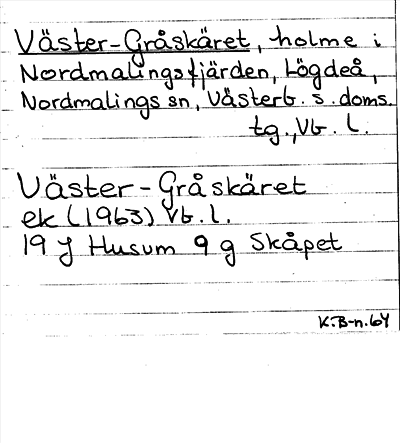 Väster-Gråskäret, holme i
Nordmalingsfjärden, Lögdeå,
Nordmalings sn, Västerb. s. doms.
tg., Vb. l.
Väster-Gråskäret
ek (1963) Vb. l.
19 J Husum 9 g Skåpet
K.B-n.64